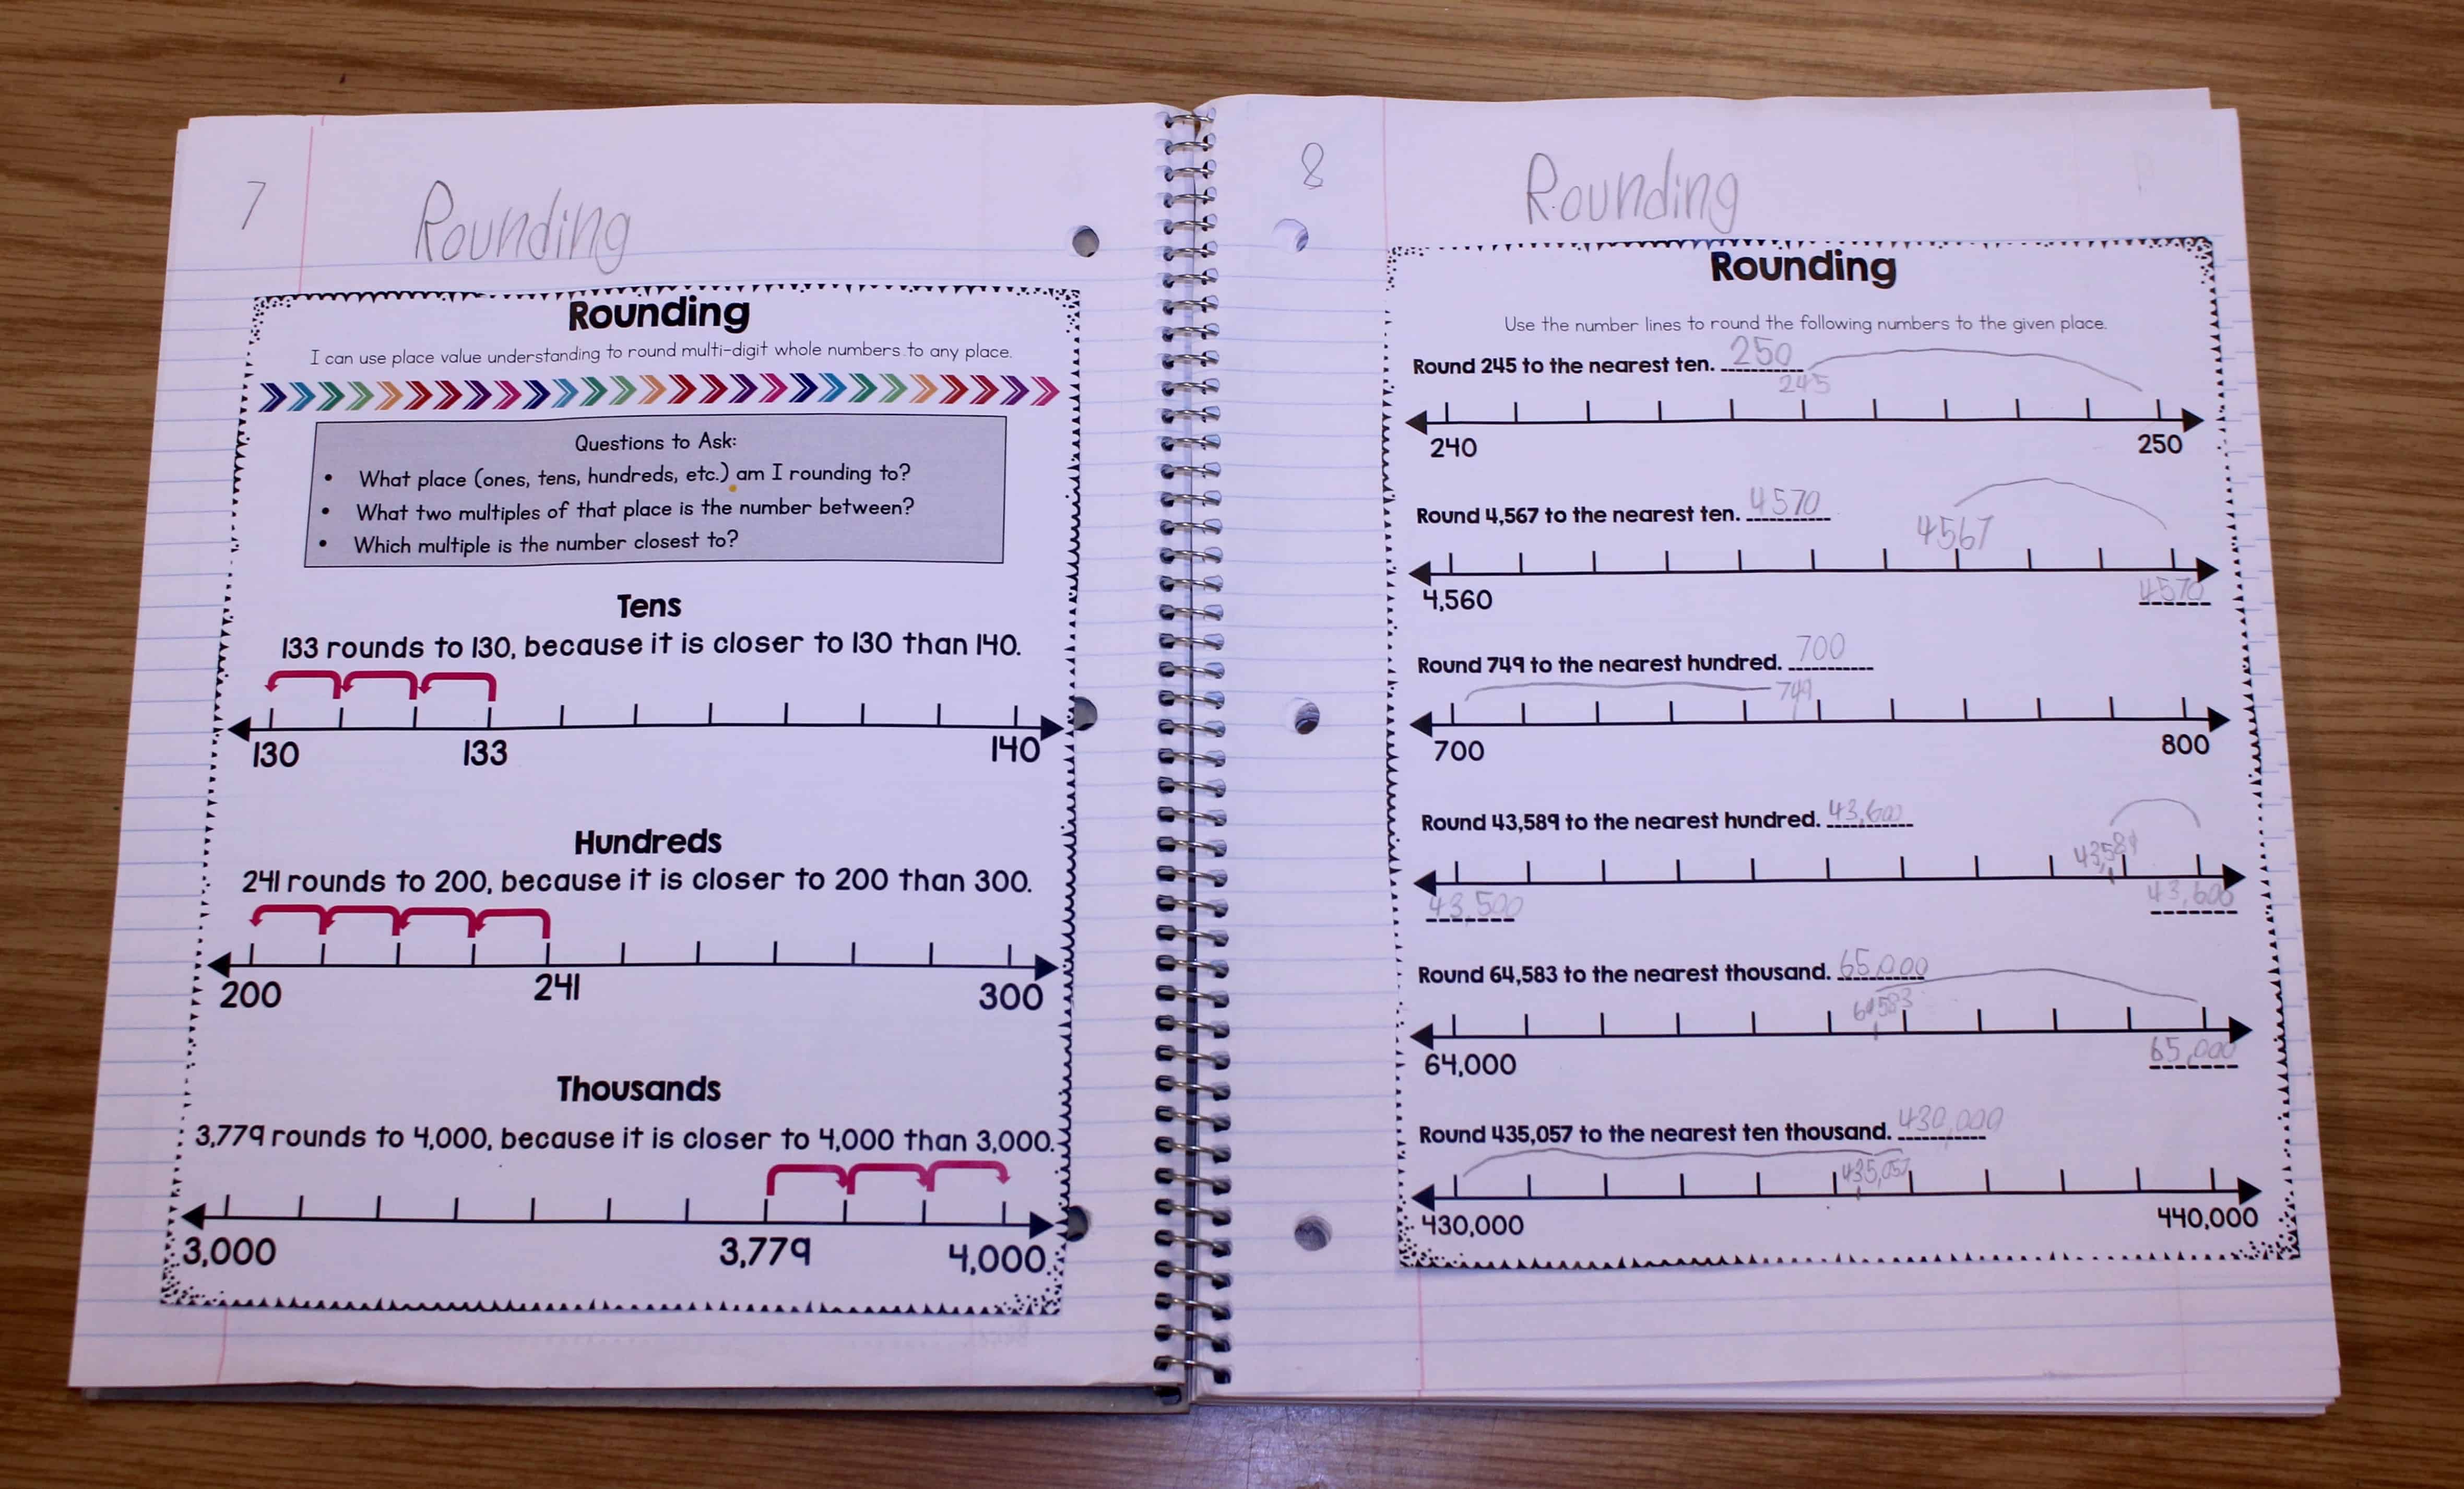 7
Rounding
Rounding
I can use place value understanding to round multi-digit whole numbers to any place.
Questions to Ask:
• What place (ones, tens, hundreds, etc.) am I rounding to?
• What two multiples of that place is the number between?
• Which multiple is the number closest to?
Tens
133 rounds to 130, because it is closer to 130 than 140.
130 133 140
Hundreds
241 rounds to 200, because it is closer to 200 than 300.
200 241 300
Thousands
3,779 rounds to 4,000, because it is closer to 4,000 than 3,000.
3,000 3,779 4,000
8
Rounding
Rounding
Use the number lines to round the following numbers to the given place.
Round 245 to the nearest ten. 250
245
240 250
Round 4,567 to the nearest ten. 4570
4567
4,560 4570
Round 749 to the nearest hundred. 700
749
700 800
Round 43,589 to the nearest hundred. 43,600
43,589
43,500 43,600
Round 64,583 to the nearest thousand. 65,000
64583
64,000 65,000
Round 435,057 to the nearest ten thousand. 430,000
435,057
430,000 440,000